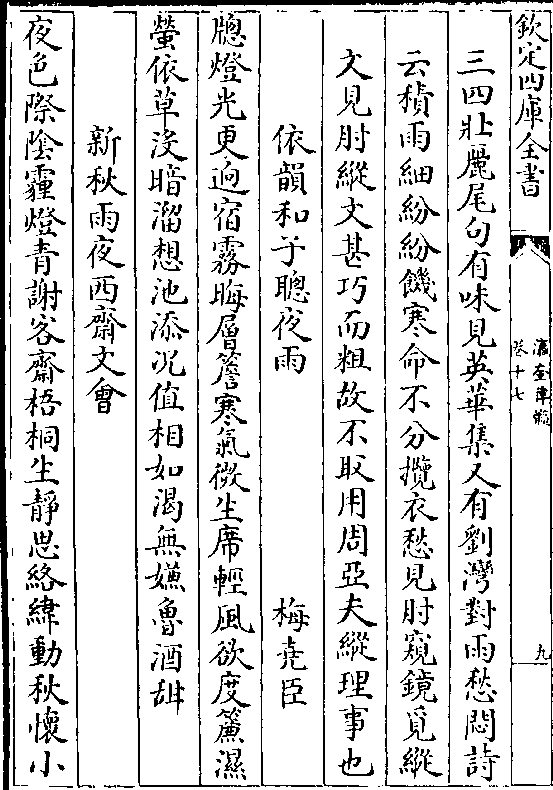 欽定四庫全書
瀛奎律髓
卷十七
九
三四壯麗尾句有味見英華集又有劉灣對雨愁悶詩
云積雨細紛紛饑寒命不分攬衣愁見肘窺鏡覓縱
文見肘縱文甚巧而粗故不取用周亞夫縱理事也
依韻和子聰夜雨 梅堯臣
牕燈光更迥宿霧晦層簷寒氣微生席輕風欲度簾濕
螢依草沒暗溜想池添况值相如渴無嫌魯酒甜
新秋雨夜西齋文會
夜色際陰霾燈青謝客齋梧桐生靜思絡緯動秋懷小